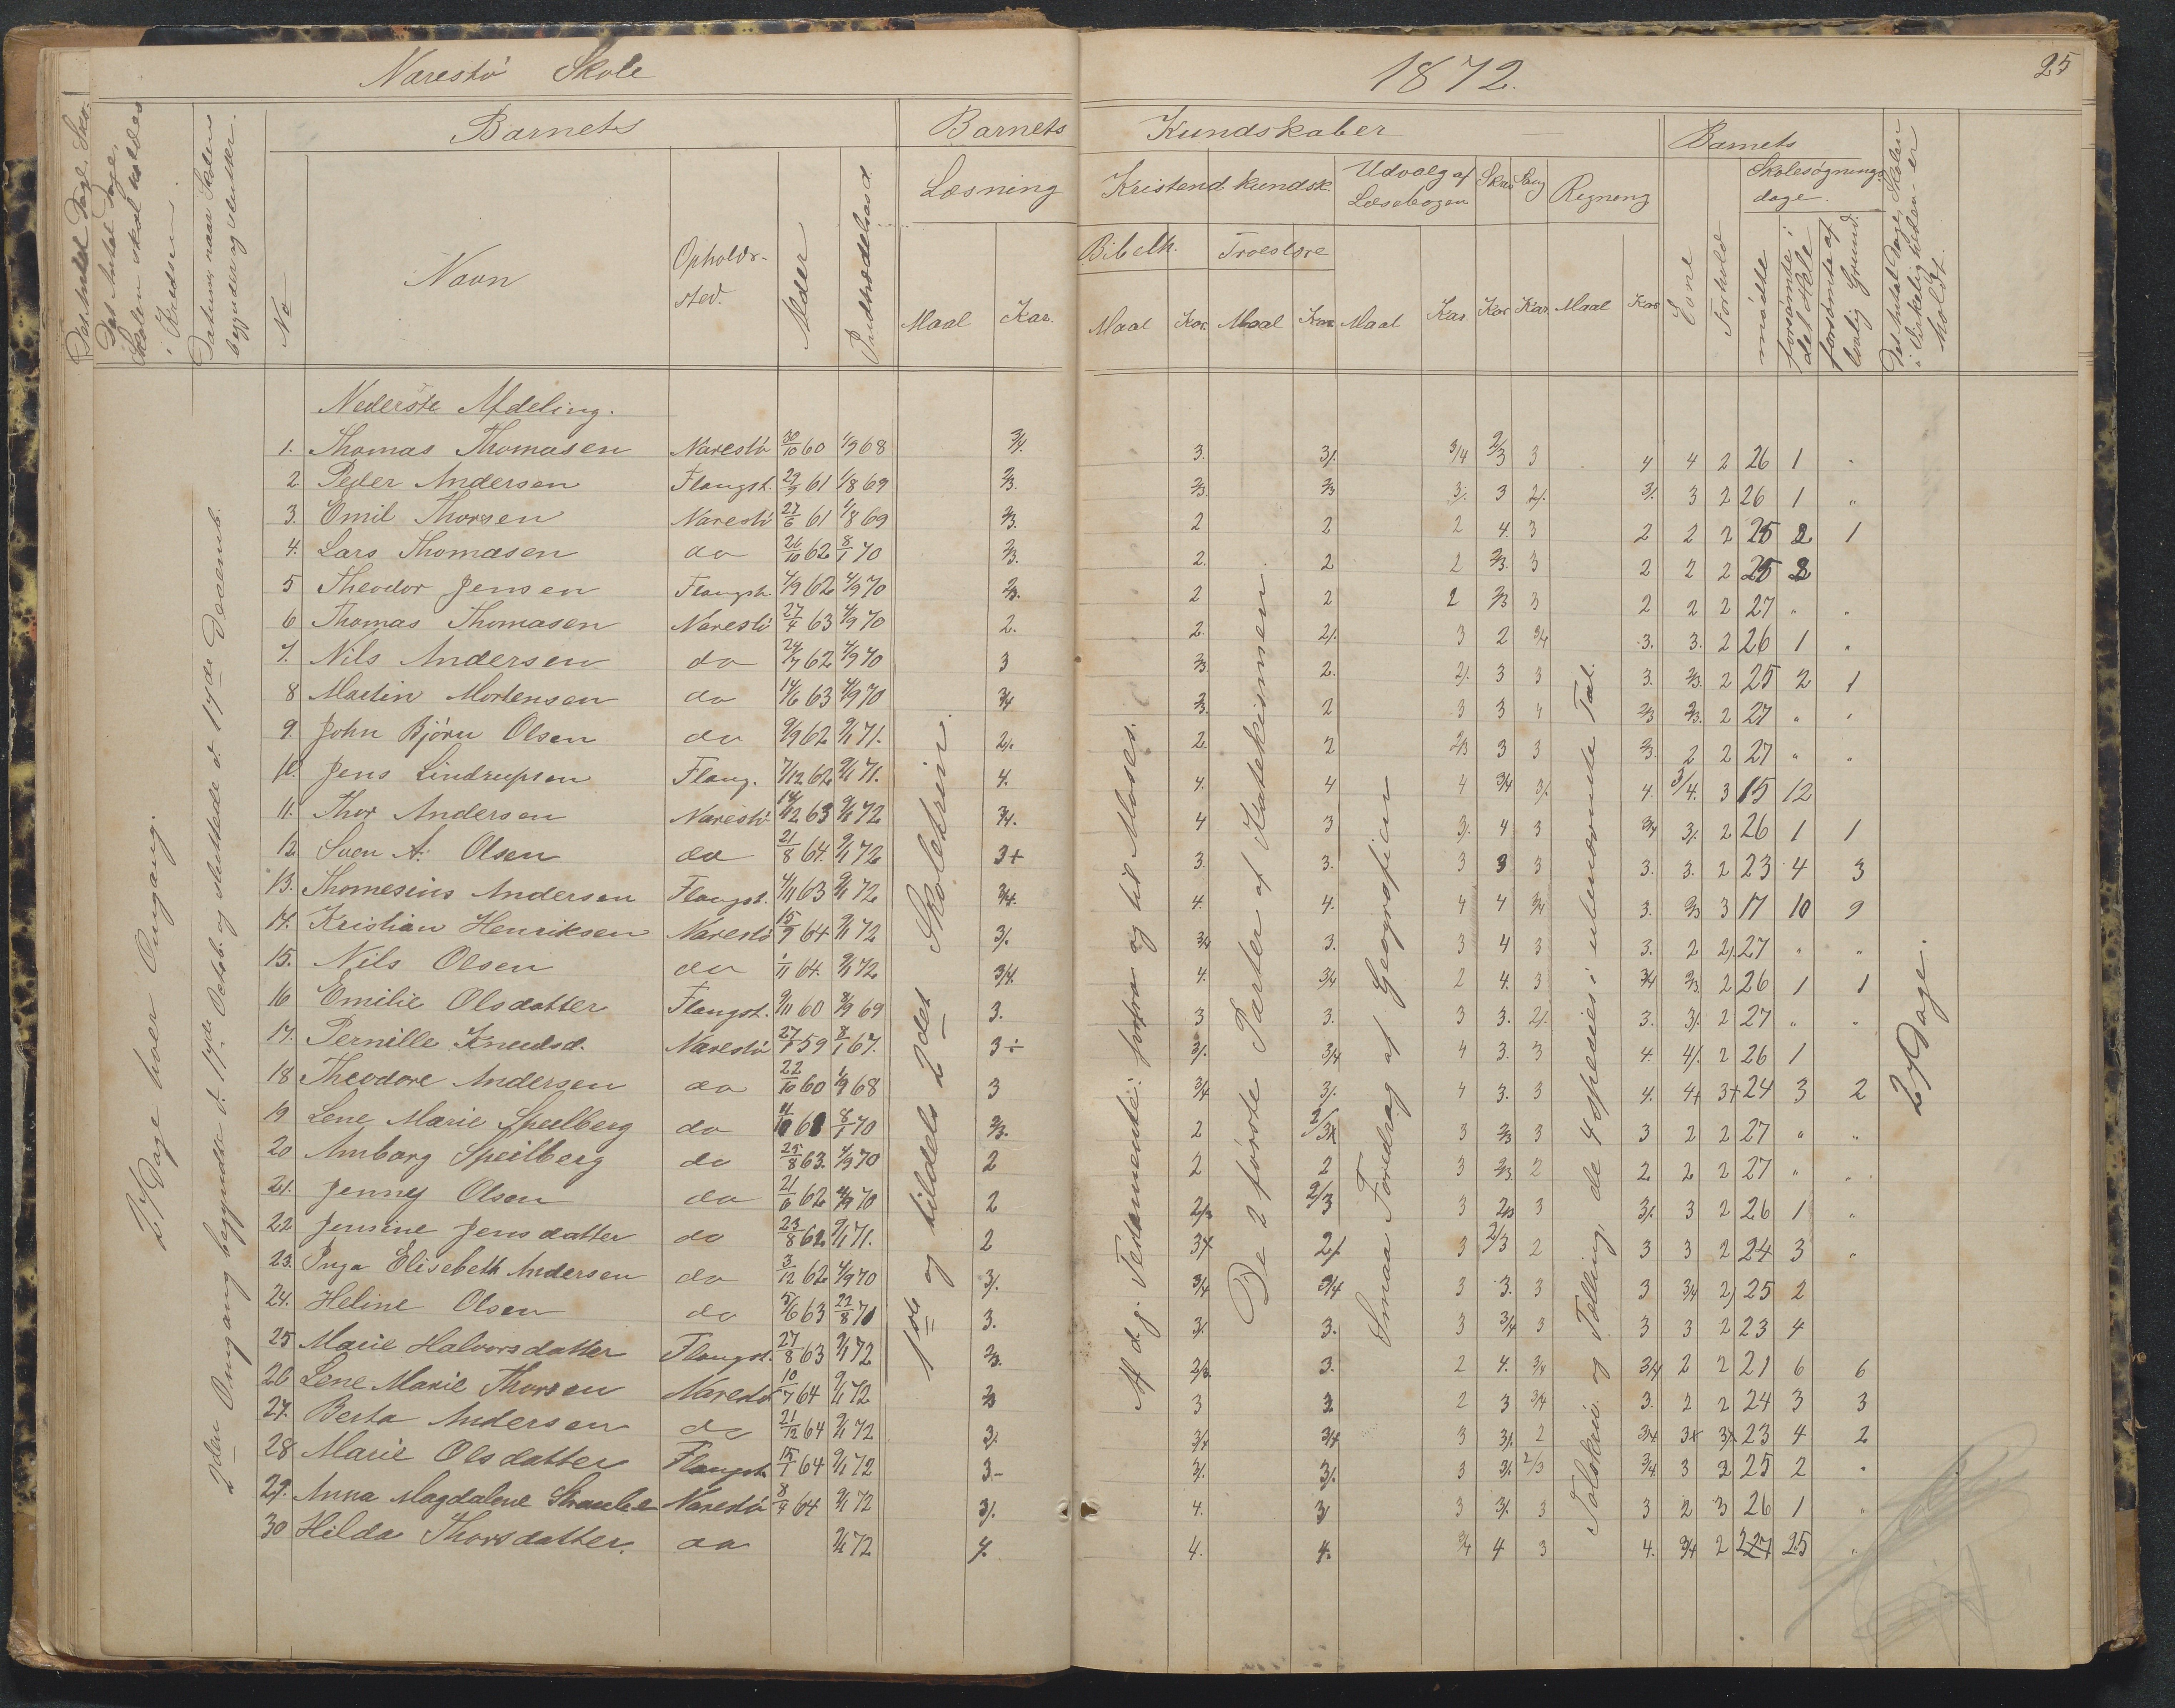 Narestø Skole
1872.
25
Det Antal Dage, Skolen skal holdes i Kredsen.
Datum, naar Skolens begynder og slutter.
Barnets
No
Navn
Opholds-sted.
Alder
Indtrædelsesd.
Barnets Kundskaber
Læsning
Maal Kar.
Kristend. kundsk.
Bibelh. Troeslære
Maal Kar. Maal Kar.
Udvalg af Læsebogen
Maal Kar.
Skriv Kar.
Sang Kar.
Regning
Maal Kar.
Barnets
Evne
Forhold
Skolesøgnings-dage.
mødte
forsømte i det Hele
forsømte af lovlig Grund.
Det Antal Dage, Skolen i Virkeligheden er holdt.
27 Dage hver Omgang.
2den Omgang begyndte d. 17de Octob. og sluttede d. 17de Decemb.
Nederste Afdeling.
1. Thomas Thomasen Narestø 30/10 60 1/9 68 3/4. 3. 3/. 3/4 2/3 3 4 4 2 26 1 "
2 Peder Andersen Flangst. 29/9 61 1/8 69 2/3. 2/3 2/3 3/. 3 2/. 3/. 3 2 26 1 "
3. Emil Thorsen Narestø 27/6 61 1/8 69 2/3. 2 2 2 4. 3 2 2 2 25 2 1
4. Lars Thomasen do 26/10 62 8/1 70 2/3. 2. 2 2 2/3. 3 2 2 2 25 2
5 Theodor Jensen Flangst. 4/9 62 4/9 70 2/3. 2 2 2 2/3 3 2 2 2 27 " "
6 Thomas Thomasen Narestø 27/4 63 4/9 70 2. 2. 2/. 3 2 3/4 3. 3. 2 26 1 "
7. Nils Andersen do 24/7 62 4/9 70 3 2/3. 2. 2/. 3 3 3. 2/3. 2 25 2 1
8 Martin Mortensen do 14/6 63 4/9 70 3/4 2/3. 2 3 3 4 2/3 2/3. 2 27 " "
9. John Bjørn Olsen do 9/9 62 9/1 71. 2/. 2. 2 2/3 3 3 2/3. 2 2 27 " "
10. Jens Lindrupsen Flang. 7/12 62 9/1 71. 4. 4. 4 4 3/4 3/. 4. 3/4. 3 15 12
11. Thor Andersen Narestø 14/12 63 9/1 72 3/4. 4 3 3/. 4 3 3/4 3/. 2 26 1 1
12 Sven A. Olsen do 21/8 64. 9/1 72 3+ 3. 3. 3 3 3 3. 3. 2 23 4 3
13. Thomesius Andersen Flangst. 4/11 63 9/1 72 3/4. 4. 4. 4 4 3/4 3. 2/3 3 17 10 9
14. Kristian Henriksen Narestø 15/9 64 9/1 72 3/. 3/4 3. 3 4 3 3. 2 2/. 27 " "
15. Nils Olsen do 1/11 64. 9/1 72 3/4. 4. 3/4 2 4. 3 3/4 2/3. 2 26 1 1
16 Emilie Olsdatter Flangst. 9/11 60 8/9 69 3. 3 3. 3 3. 2/. 3. 3/. 2 27 " "
17. Pernille Knudsd. Narestø 27/1 59 8/1 67. 3÷ 3/. 3/4 4 3. 3 4. 4/. 2 26 1
18 Theodore Andersen do 22/10 60 1/9 68 3 3/4 3/. 4 3. 3 4. 4+ 3+ 24 3 2
19 Lene Marie Speilberg do 8/1 70 2/3. 2 3 2/3 3 3 2 2 27 " "
20 Amborg Speilberg do 25/8 63. 4/9 70 2 2 2 3 2/3 2 2 2 2 27 " "
21. Jenney Olsen do 21/6 62 4/9 70 2 2/3 2/3 3 2/3 3 3/. 3 2 26 1 "
22 Jensine Jensdatter do 23/8 62 9/1 71. 2 3+ 2/. 3 2/3 2 3 3 2 24 3 "
23. Inga Elisebeth Andersen do 3/12 62 4/9 70 3/. 3/4 3/4 3 3. 3 3 3/4 2/ 25 2
24. Heline Olsen do 5/6 63 22/8 70 3. 3/. 3. 3 3/4 3 3 3 2 23 4
25 Marie Halvorsdatter Flangst. 27/8 63 9/1 72 2/3. 2/3. 3. 2 4. 3/4 3/4 2 2 21 6 6
26 Lene Marie Thorsen Narestø 10/7 64 9/1 72 2/3 3 3 2 3 3/4 3. 2 2 24 3 3
27. Berta Andersen do 21/12 64 9/1 72 3/. 3/4 3/4 3 3/. 2 3/4 3+ 3+ 23 4 2
28 Marie Olsdatter Flangst. 15/1 64 9/1 72 3- 3/. 3/. 3 3/. 2/3 3/4 3 2 25 2 "
29. Anna Magdalene Narestø 8/4 64 9/1 72 3/. 4. 3/ 3 3/. 3 3 2 3 26 1 "
30 Hilda Thorsdatter. do 9/1 72 4. 4. 4. 3/4 4 3 4. 3/4 2 25 "
1ste og tildels 2det Skoletrin.
Af d. g. Testamente: forfra og til Moses.
De 2 første Parter af Katekismen.
Smaa Foredrag af Geografien
Talskriv. og Tælling, de 4 Species i ubenævnte Tal.
27 Dage.